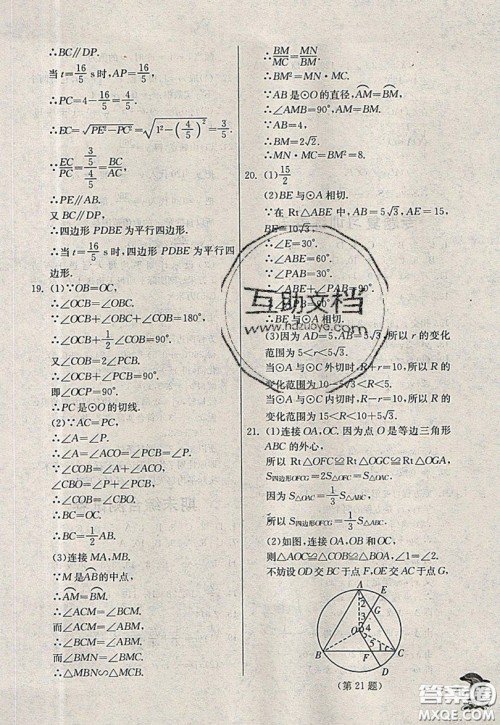 ∴BC∥DP.
当 t=16/5 s时,AP=16/5,
∴PC=4-16/5=4/5.
∴EC=√(PE²-PC²)=√(1²-(4/5)²)=3/5.
∵EC/PC=(3/5)/(4/5)=BC/AC,
∴PE∥AB.
又BC∥DP,
∴四边形 PDBE 为平行四边形.
∴当 t=16/5 s时,四边形 PDBE 为平行四
边形.
19. (1)∵OB=OC,
∴∠OCB=∠OBC.
∵∠OCB+∠OBC+∠COB=180°,
∴∠OCB+1/2∠COB=90°.
又∠COB=2∠PCB,
∴∠OCB+∠PCB=90°.
即∠OCP=90°.
∴PC是⊙O的切线.
(2)∵AC=PC,
∴∠A=∠P.
∴∠A=∠ACO=∠PCB=∠P.
∴∠COB=∠CBO.
∴BC=OC.
∴BC=1/2 AB.
(3)连接 MA,MB.
∵M是AB的中点,
∴AM=BM.
∴∠ACM=∠BCM.
而∠ACM=∠ABM,
∴∠BCM=∠ABM.
而∠BMN=∠BMC,
∴△MBN∽△MCB.
∴BM/MC=MN/BM.
∴BM²=MN·MC.
∵AB 是⊙O 的直径,AM=BM,
∴∠AMB=90°,AM=BM.
∵AB=4,
∴BM=2√2.
∴MN·MC=BM²=8.
20. (1)15/2
(2)BE与⊙A 相切.
∵在 Rt△ABE 中,AB=5√3,AE=15,
∴BE=10√3.
∴∠E=30°.
∴∠ABE=60°.
∵∠PAB=30°,
∴∠ABE+∠PAB=90°.
∴BE与⊙A 相切.
(3)因为 AD=5,AB=5√3,所以 r 的变化
范围为 5<r<5√3.
当⊙A 与⊙C 外切时,R+r=10,所以R的
变化范围为 10-5√3<R<5.
当⊙A 与⊙C 内切时,R-r=10,所以R的
变化范围为 15<R<10+5√3.
21. (1)连接 OA,OC. 因为点 O 是等边三角形
ABC 的外心,
所以 Rt△OFC≌Rt△OGC≌Rt△OGA.
所以 S四边形OFCG=2S△OFC=S△OAC.
因为 S△OAC=1/3 S△ABC,
所以 S四边形OFCG=1/3 S△ABC.
(2)如图,连接 OA,OB 和 OC,
则△AOC≌△COB≌△BOA.
不妨设OD 交BC于点F,OE交AC于点G.
A
E
3
2
G
O
4
5
1
r
B
F
C
D
(第 21 题)
互助文档
www.hdzuoye.com
答案圈
MXQE.COM